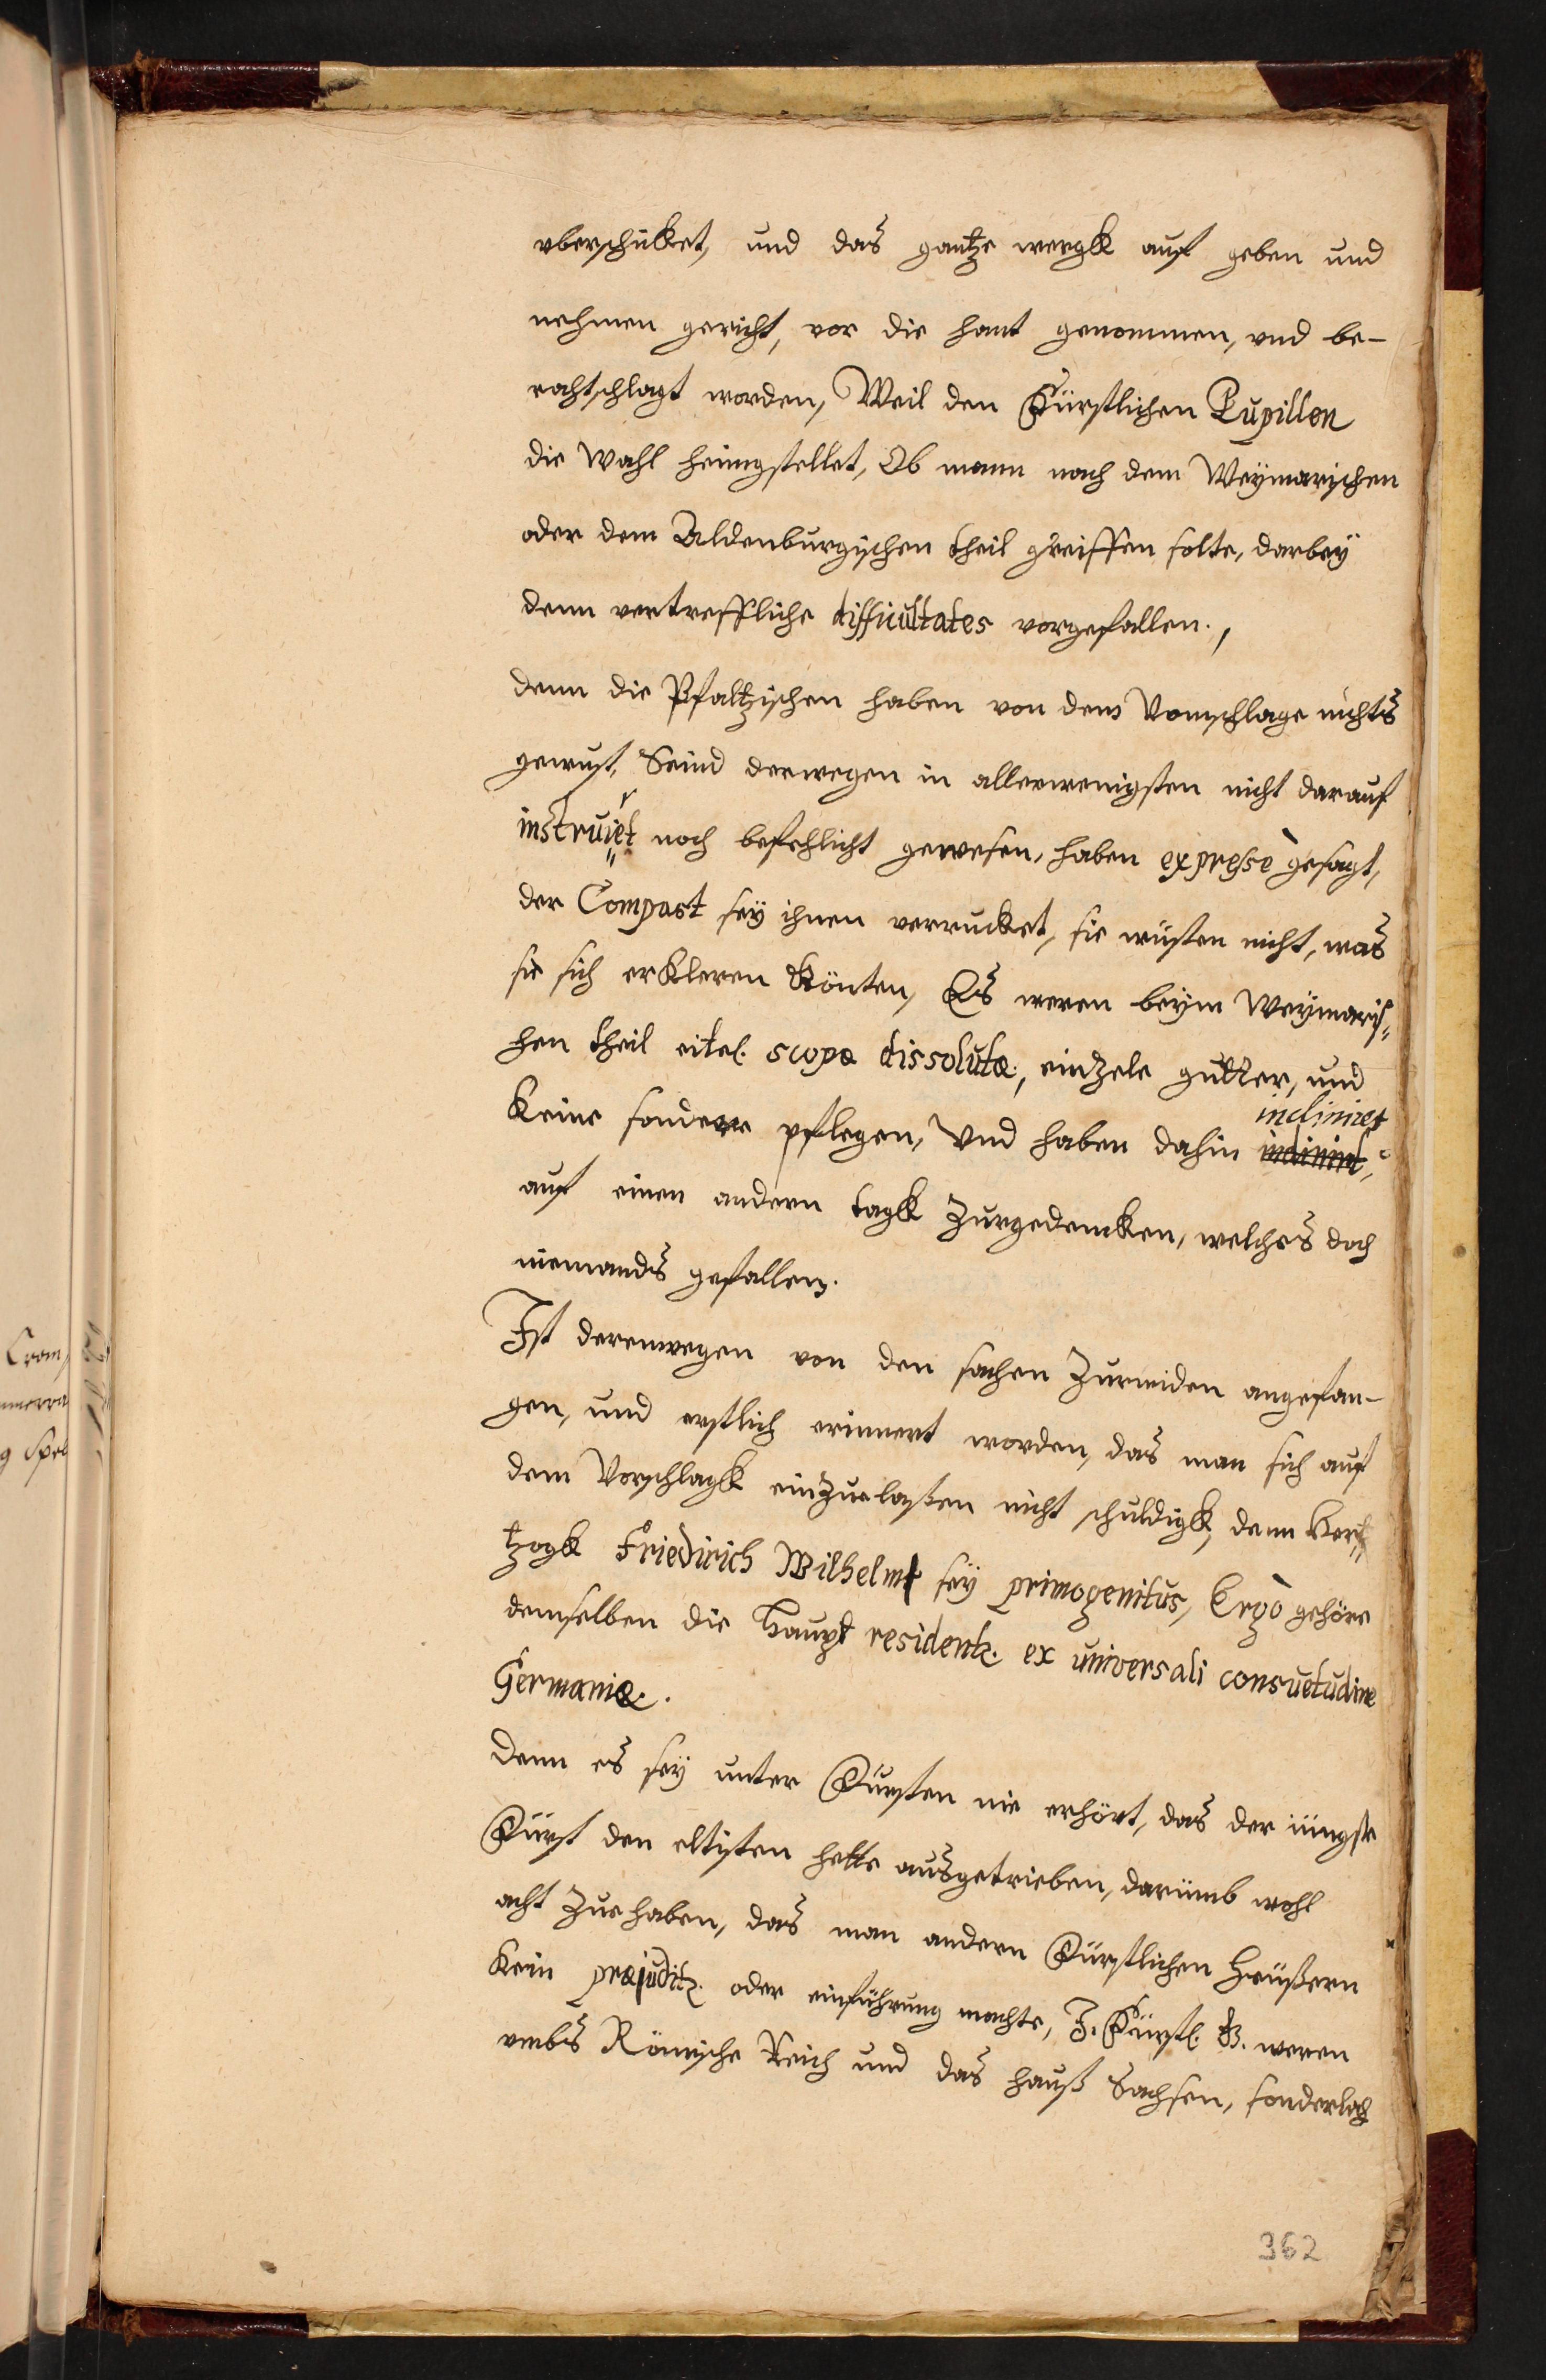 vberschikket, und das gantze wergk auf geben und
nehmen gericht, vor die hant genommen, und be-
rahtschlagt worden, Weil den Fürstlichen Pupillen
die wahl heimgstellet, Ob mann nach dem Weymarischen
oder dem Aldenburgischen theil greiffen solte, darbey
denn vertreffliche difficultates vorgefallen.,
denn die Pfaltzischen haben von dem Vorschlage nichts
gewust, Seind derwegen in allerwenigsten nicht darauf
instruiret noch befehlicht gewesen, haben expresse gesagt,
der Compast sey ihnen verrucket, sie wüsten nicht, was
sie sich erkleren könten, Es weren beym Weymaris„
hen theil eitel scopæ dissolutæ, eintzele gutter, und
keine sondere pflegen, Und haben dahin incliniret
auf einen andern tagk zurgedencken, welches doch
niemands gefallen.
Ist derenwegen von den sachen zureiden angefan-
gen, und erstlich erinnert worden, das man sich auf
dem Vorschlagk einzuelaßen nicht schuldigk, denn Hert„
tzogk Friedirich Wilhelm sey primogenitus, Ergò gehöre
demselben die Haupt residentz. ex universali consuetudine
Germaniæ.
denn es sey unter Fürsten nie erhört, das der iüngste
Fürst den eltisten hette ausgetrieben, darümb wohl
acht zue haben, das man andern Fürstlichen Heüßern
kein præjuditz. oder einführung machte, I. Fürstl. G. weren
vmbs Römische Reich und das hauß Sachsen, sonderlich
362